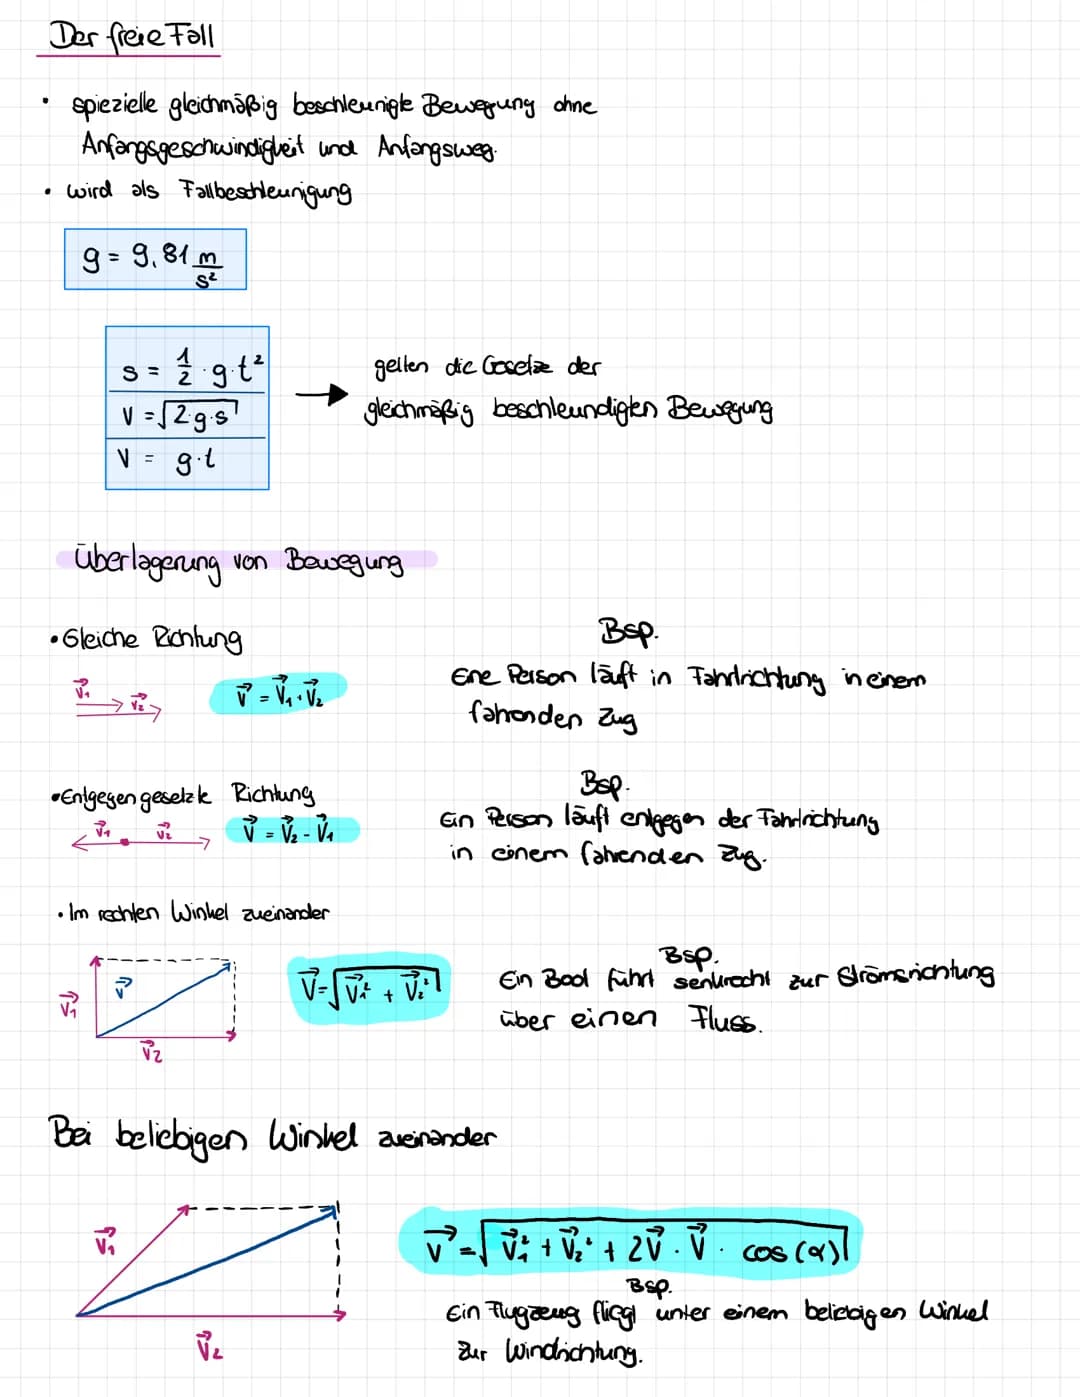 Der freie Fall
• spiezielle gleichmäßig beschleunigte Bewegung ohne
Anfangsgeschwindigkeit und Anfangsweg.
• wird als Fallbeschleunigung
g = 9,81 m/s²
s = 1/2 · g · t²
v = √2·g·s
v = g·t
→ gelten die Gesetze der
gleichmäßig beschleundigten Bewegung
Überlagerung von Bewegung
• Gleiche Richtung
v⃗₁ v⃗₂
v⃗ = v⃗₁ + v⃗₂
Bsp.
Ene Person läuft in Fahrtrichtung in einem
fahrenden Zug
• Entgegengesetzte Richtung
v⃗₁ v⃗₂
v⃗ = v⃗₂ - v⃗₁
Bsp.
Ein Person läuft entgegen der Fahrtrichtung
in einem fahrenden Zug.
• Im rechten Winkel zueinander
v⃗₁ v⃗ v⃗₂
v⃗ = √v⃗₁² + v⃗₂²
Bsp.
Ein Boot führt senkrecht zur Strömsrichtung
über einen Fluss.
Bei beliebigen Winkel zueinander
v⃗₁
v⃗₂
v⃗ = √v⃗₁² + v⃗₂² + 2v⃗ · v⃗ · cos(α)
Bsp.
Ein Flugzeug fliegt unter einem beliebigen Winkel
zur Windrichtung.